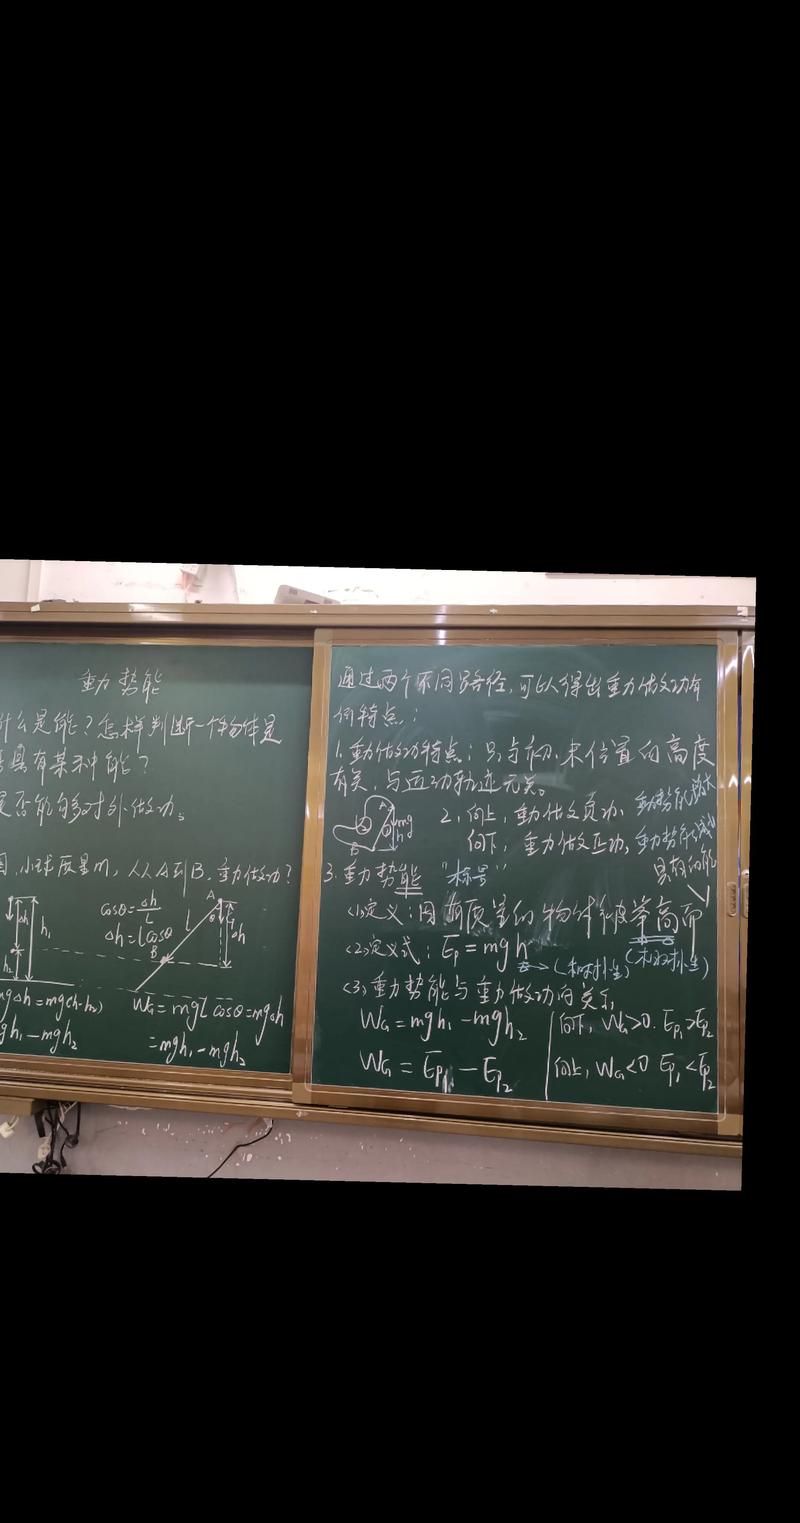 重力势能
什么是能？怎样判断一个物体是
具有某种能？
是否能够对外做功。
小球质量m，从A到B，重力做功？
cosθ=Δh/l
Δh=lcosθ
A
l
θ
Δh
B
Δh
h₁
h₂
mgΔh=mg(h₁-h₂)
mgh₁-mgh₂
W_G=mgl cosθ=mgΔh
=mgh₁-mgh₂
通过两个不同路径，可以得出重力做功有
何特点：
1. 重力做功特点：只与初、末位置的高度
有关，与运动轨迹无关。
A
B
mg
h
2. 向上，重力做负功，重力势能增大
向下，重力做正功，重力势能减小
3. 重力势能 "标号"
具有的能
(1)定义：因有质量的物体被举高而
(2)定义式：Ep=mgh
(相对性) (相对性)
(3)重力势能与重力做功的关系
W_G=mgh₁-mgh₂
W_G=Ep₁-Ep₂
向下，W_G>0. Ep₁>Ep₂
向上，W_G<0 Ep₁<Ep₂